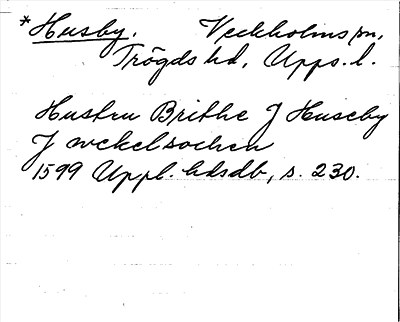 *Husby. Veckholms sn,
Trögds hd, Upps. l.
Hustru Brithe J Huseby
J veckelsochen
1599 Uppl. hdsdb, s. 230.